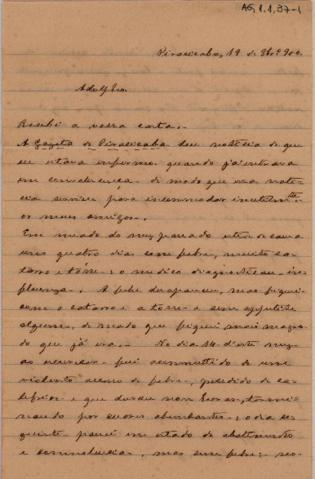 AG, 1.1, 37-1
Piracicaba, 19 de 9bro 900
Adolpho
Recebi a vossa carta.
A Gazeta de Piracicaba deu noticia de que
eu estava enfermo quando já entrava
em convalescença de modo que essa noti-
cia serviu para incommodar inutilmte
os meus amigos.
Em meado do mez passado estive de cama
uns quatro dias com febre, muito ca-
tarro e tosse: o medico diagnosticou in-
fluenza. A febre desappareceu, mas fiquei
com o catarro e a tosse e sem appetite
algum, de modo que fiquei mais magro
do que já era. No dia 14 d'este mez
ao accordar fui accommettido de um
violento accesso de febre, precedido de ca-
lafrios e que durou nove horas, termi-
nando por suores abundantes; o dia se-
guinte passei em estado de abatimento
e somnolencia, mas sem febre; no